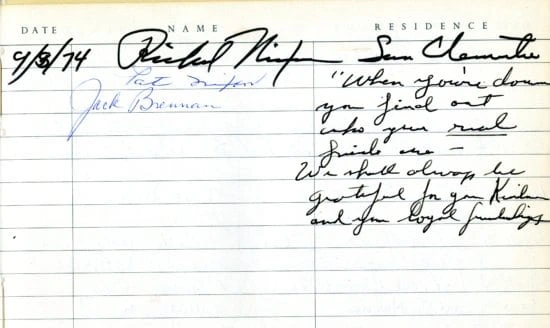 DATE NAME RESIDENCE
9/8/74 Richard Nixon San Clemente
Pat Nixon "When you're down
Jack Brennan you find out
who your real
friends are –
We shall always be
grateful for your Kindness
and your loyal friendships